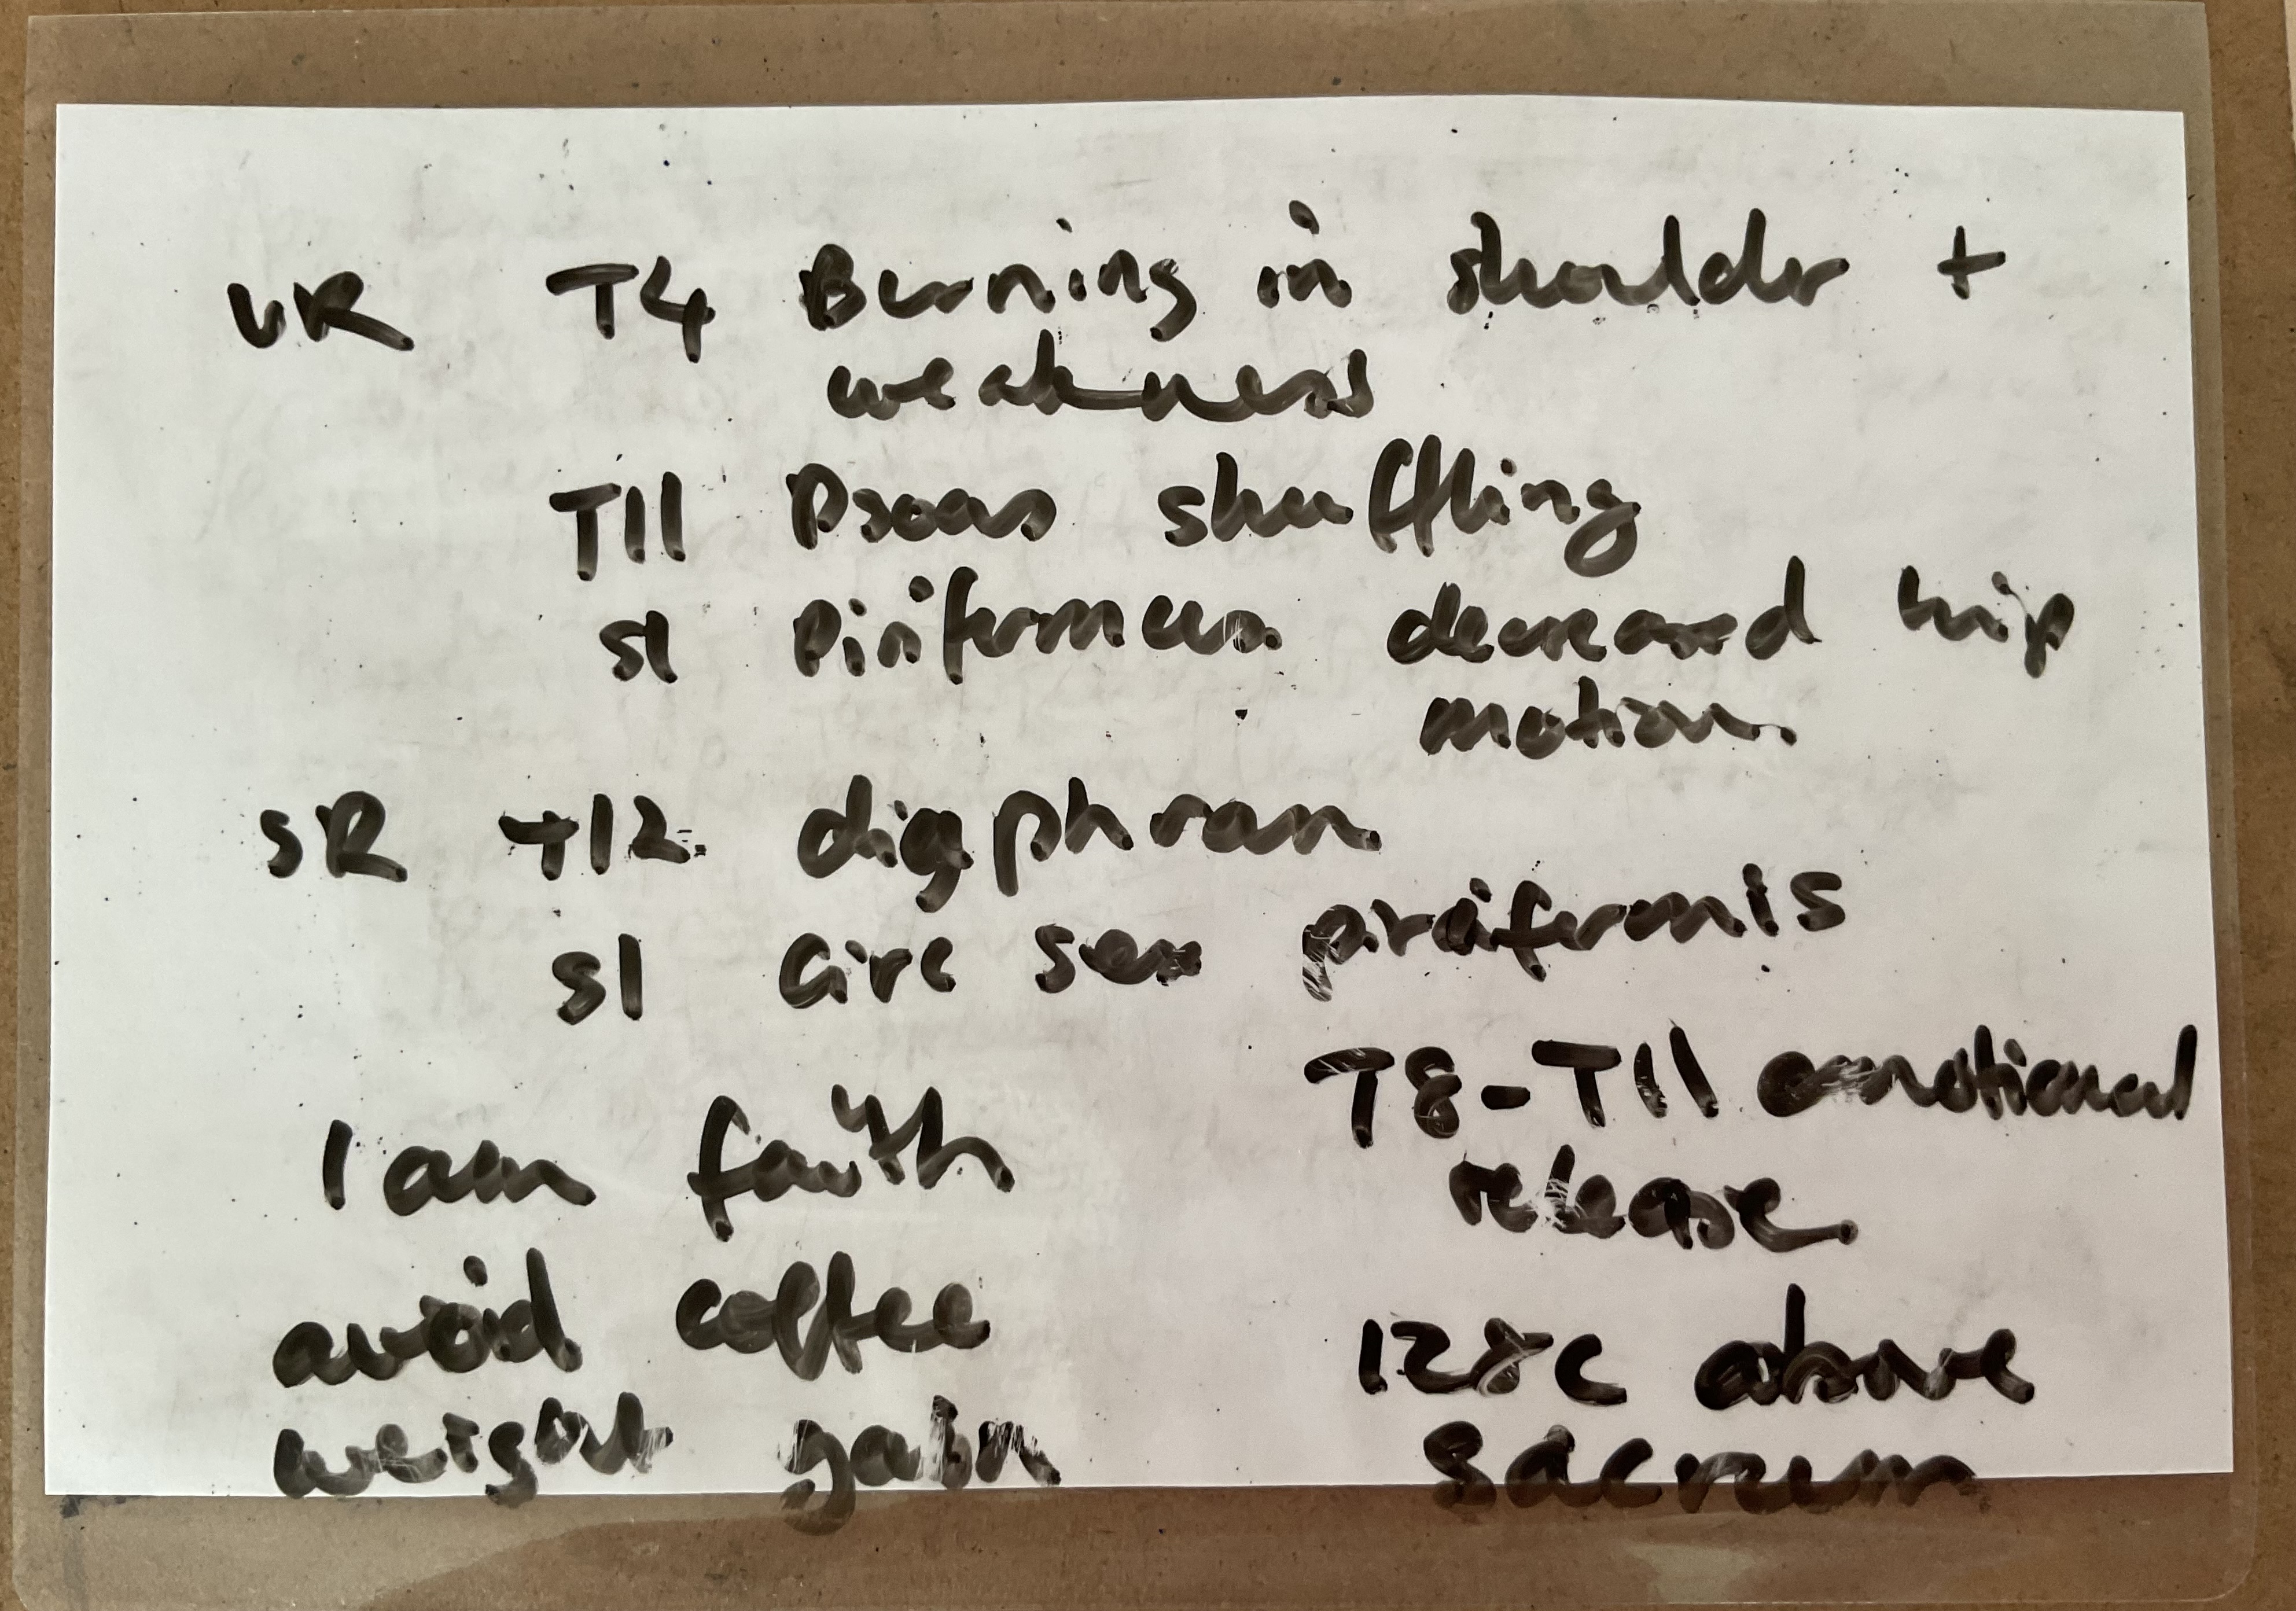 VR T4 Burning in shoulder +
weakness
T11 Psoas shuffling
S1 Piriformis decreased hip
motion
SR T12 diaphram
S1 Circ sex piriformis
T8-T11 emotional
release
I am faith
avoid coffee
weight gain
128c above
sacrum